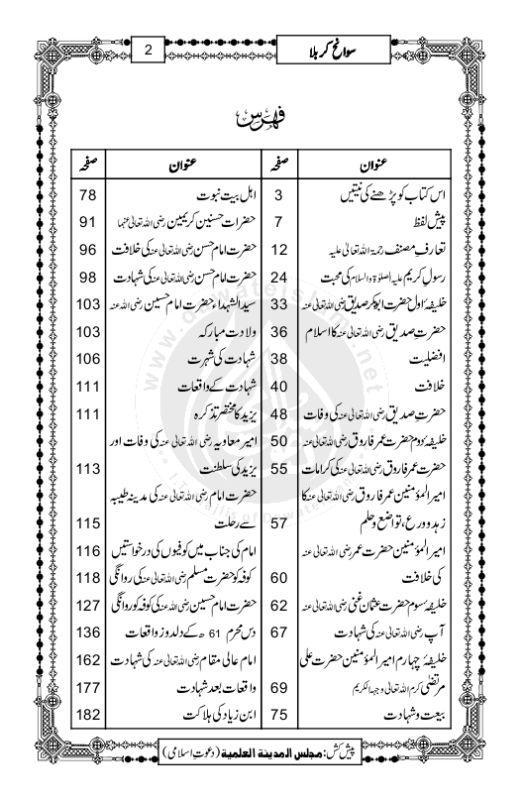 سوانح کربلا
2
فہرس
عنوان صفحہ
اس کتاب کو پڑھنے کی نیتیں 3
پیش لفظ 7
تعارف مصنف رحمۃ اللہ تعالیٰ علیہ 12
رسول کریم علیہ الصلوٰۃ والسلام کی محبت 24
خلیفۂ اول حضرت ابوبکر صدیق رضی اللہ تعالیٰ عنہ 33
حضرت صدیق رضی اللہ تعالیٰ عنہ کا اسلام 36
افضلیت 38
خلافت 40
حضرت صدیق رضی اللہ تعالیٰ عنہ کی وفات 48
خلیفۂ دوم حضرت عمر فاروق رضی اللہ تعالیٰ عنہ 50
حضرت عمر فاروق رضی اللہ تعالیٰ عنہ کی کرامات 55
امیر المؤمنین عمر فاروق رضی اللہ تعالیٰ عنہ کا
زہد و ورع، تواضع و حلم 57
امیر المؤمنین حضرت عمر رضی اللہ تعالیٰ عنہ
کی خلافت 60
خلیفۂ سوم حضرت عثمان غنی رضی اللہ تعالیٰ عنہ 62
آپ رضی اللہ تعالیٰ عنہ کی شہادت 67
خلیفۂ چہارم امیر المؤمنین حضرت علی
مرتضیٰ کرم اللہ تعالیٰ وجہہ الکریم 69
بیعت و شہادت 75
عنوان صفحہ
اہل بیت نبوت 78
حضرات حسنین کریمین رضی اللہ تعالیٰ عنہما 91
حضرت امام حسن رضی اللہ تعالیٰ عنہ کی خلافت 96
حضرت امام حسن رضی اللہ تعالیٰ عنہ کی شہادت 98
سید الشہداء حضرت امام حسین رضی اللہ تعالیٰ عنہ 103
ولادت مبارکہ 103
شہادت کی شہرت 106
شہادت کے واقعات 111
یزید کا مختصر تذکرہ 111
امیر معاویہ رضی اللہ تعالیٰ عنہ کی وفات اور
یزید کی سلطنت 113
حضرت امام رضی اللہ تعالیٰ عنہ کی مدینہ طیبہ
سے رحلت 115
امام کی جناب میں کوفیوں کی درخواستیں 116
کوفہ کو حضرت مسلم رضی اللہ تعالیٰ عنہ کی روانگی 118
حضرت امام حسین رضی اللہ تعالیٰ عنہ کی کوفہ کو روانگی 127
دس محرم 61 ھ کے دلدوز واقعات 136
امام عالی مقام رضی اللہ تعالیٰ عنہ کی شہادت 162
واقعات بعد شہادت 177
ابن زیاد کی ہلاکت 182
پیش کش: مجلس المدینۃ العلمیۃ (دعوت اسلامی)